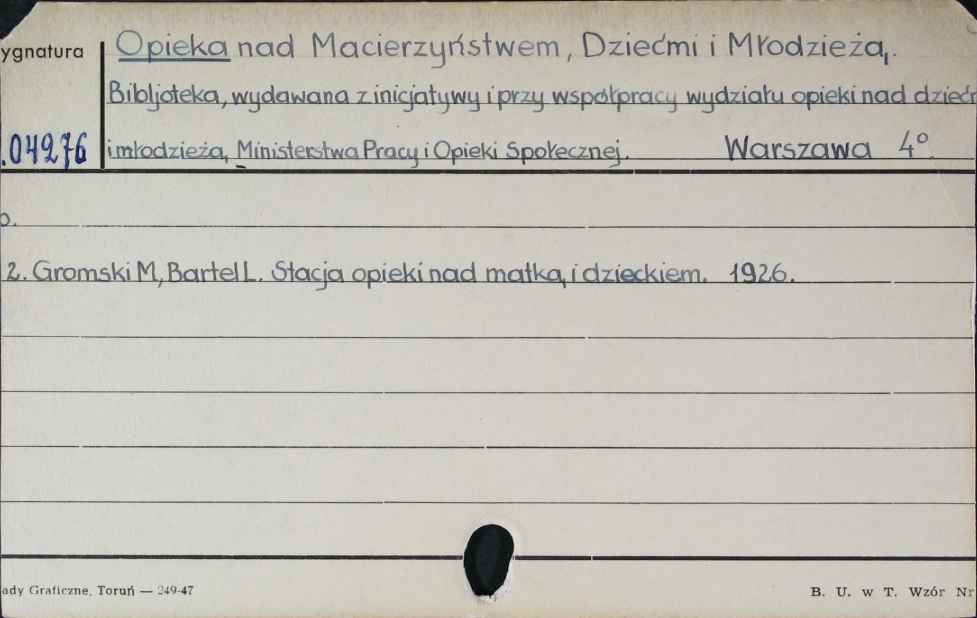 ygnatura
Opieka nad Macierzyństwem, Dziećmi i Młodzieżą.
Bibljoteka, wydawana z inicjatywy i przy współpracy wydziału opieki nad dziećm
.04276
i młodzieżą, Ministerstwa Pracy i Opieki Społecznej. Warszawa 4°.
o.
2. Gromski M, Bartel L. Stacja opieki nad matką i dzieckiem. 1926.
ady Graficzne, Toruń — 249-47
B. U. w T. Wzór Nr